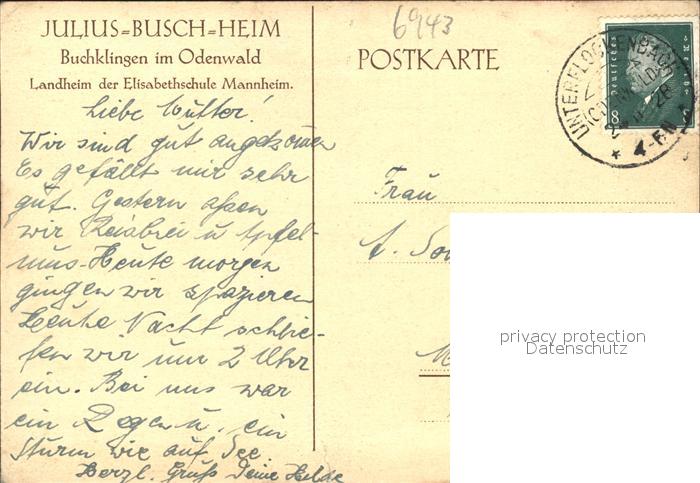 JULIUS=BUSCH=HEIM
Buchklingen im Odenwald
Landheim der Elisabethschule Mannheim.
POSTKARTE
6943
UNTERFLOCKENBACH
(ODENWALD)
28
4-5 N
Deutsches Reich
8
Liebe Mutter!
Wir sind gut angekommen
Es gefällt mir sehr
gut. Gestern assen
wir Reisbrei u Apfel-
mus. Heute morgen
gingen wir spazieren
Heute Nacht schlie-
fen wir um 2 Uhr
ein. Bei uns war
ein Regen u. ein
Sturm wie auf See.
Herzl. Gruß Deine Hilde
Frau
A.
M
privacy protection
Datenschutz